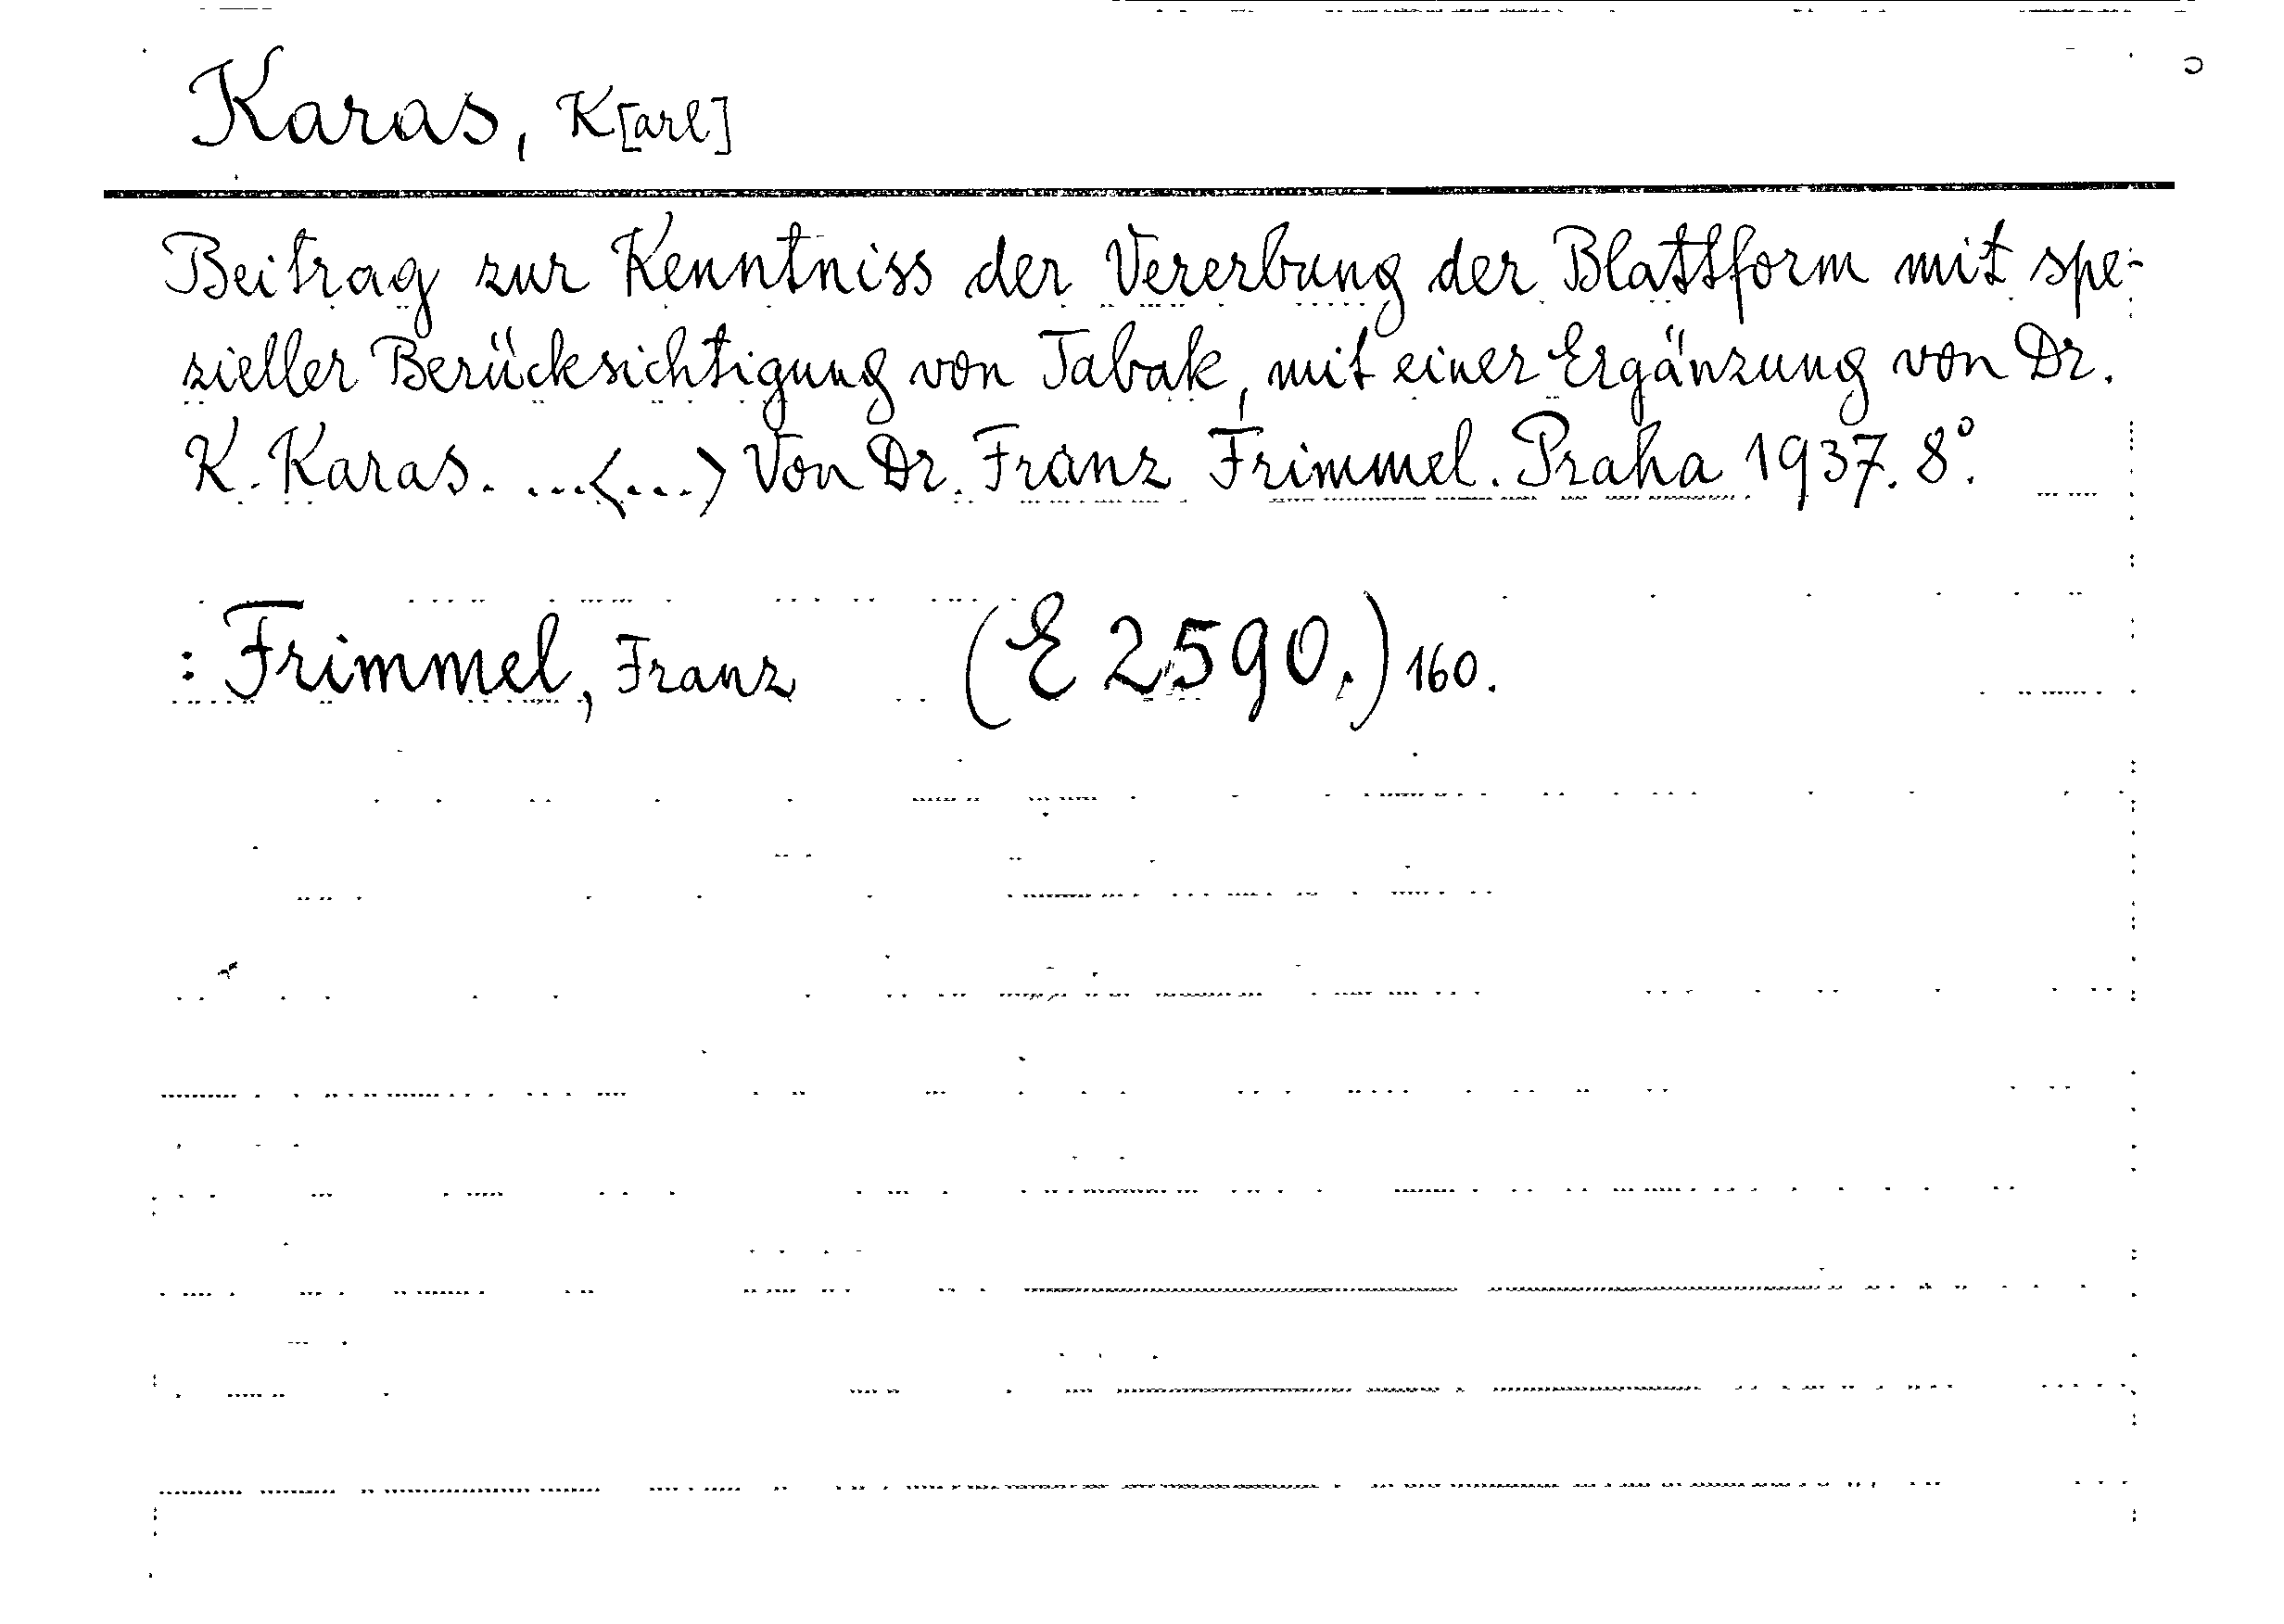 Karas, K[arl]
Beitrag zur Kenntniss der Vererbung der Blattform mit spe-
zieller Berücksichtigung von Tabak, mit einer Ergänzung von Dr.
K. Karas. ...<...> Von Dr. Franz Frimmel. Praha 1937. 8°.
: Frimmel, Franz (E 2590.) 160.